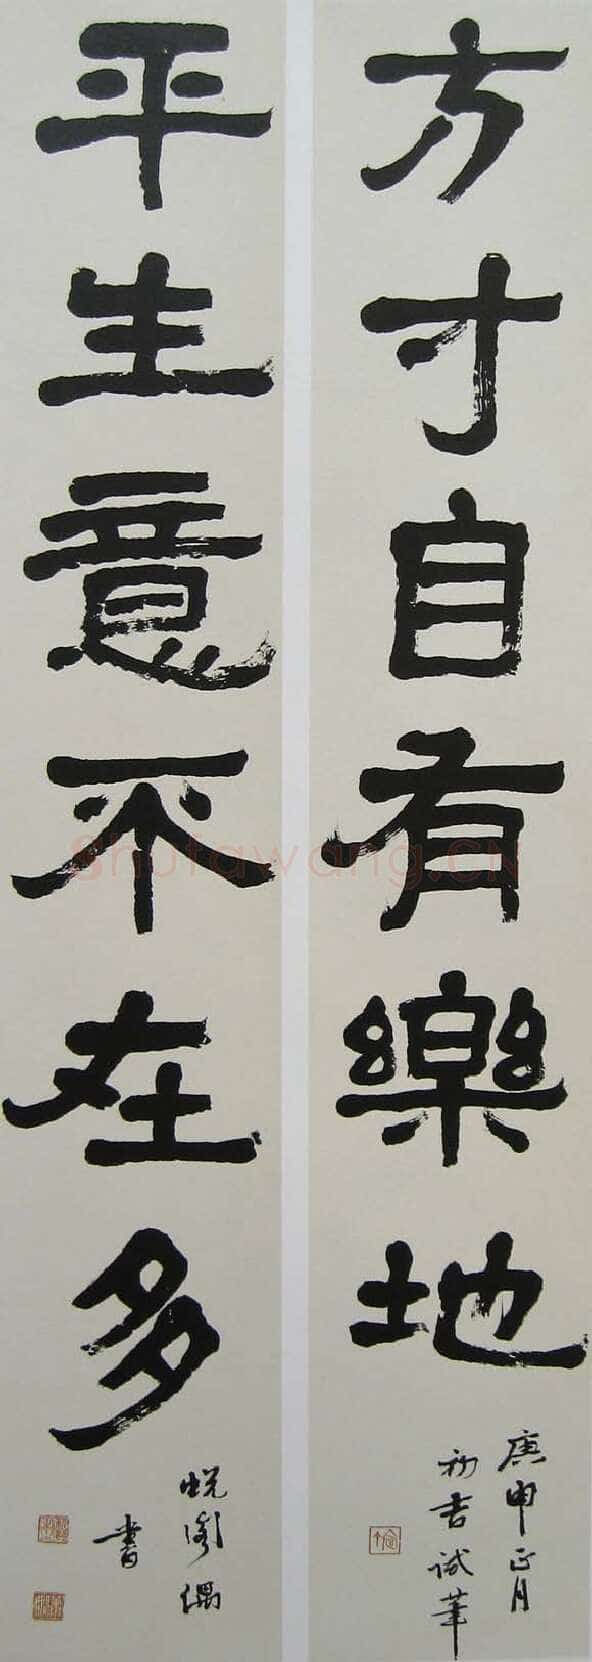 方寸自有樂地
庚申正月
初吉試筆
平生意不在多
蜕阁偶
書
Shufawang.CN